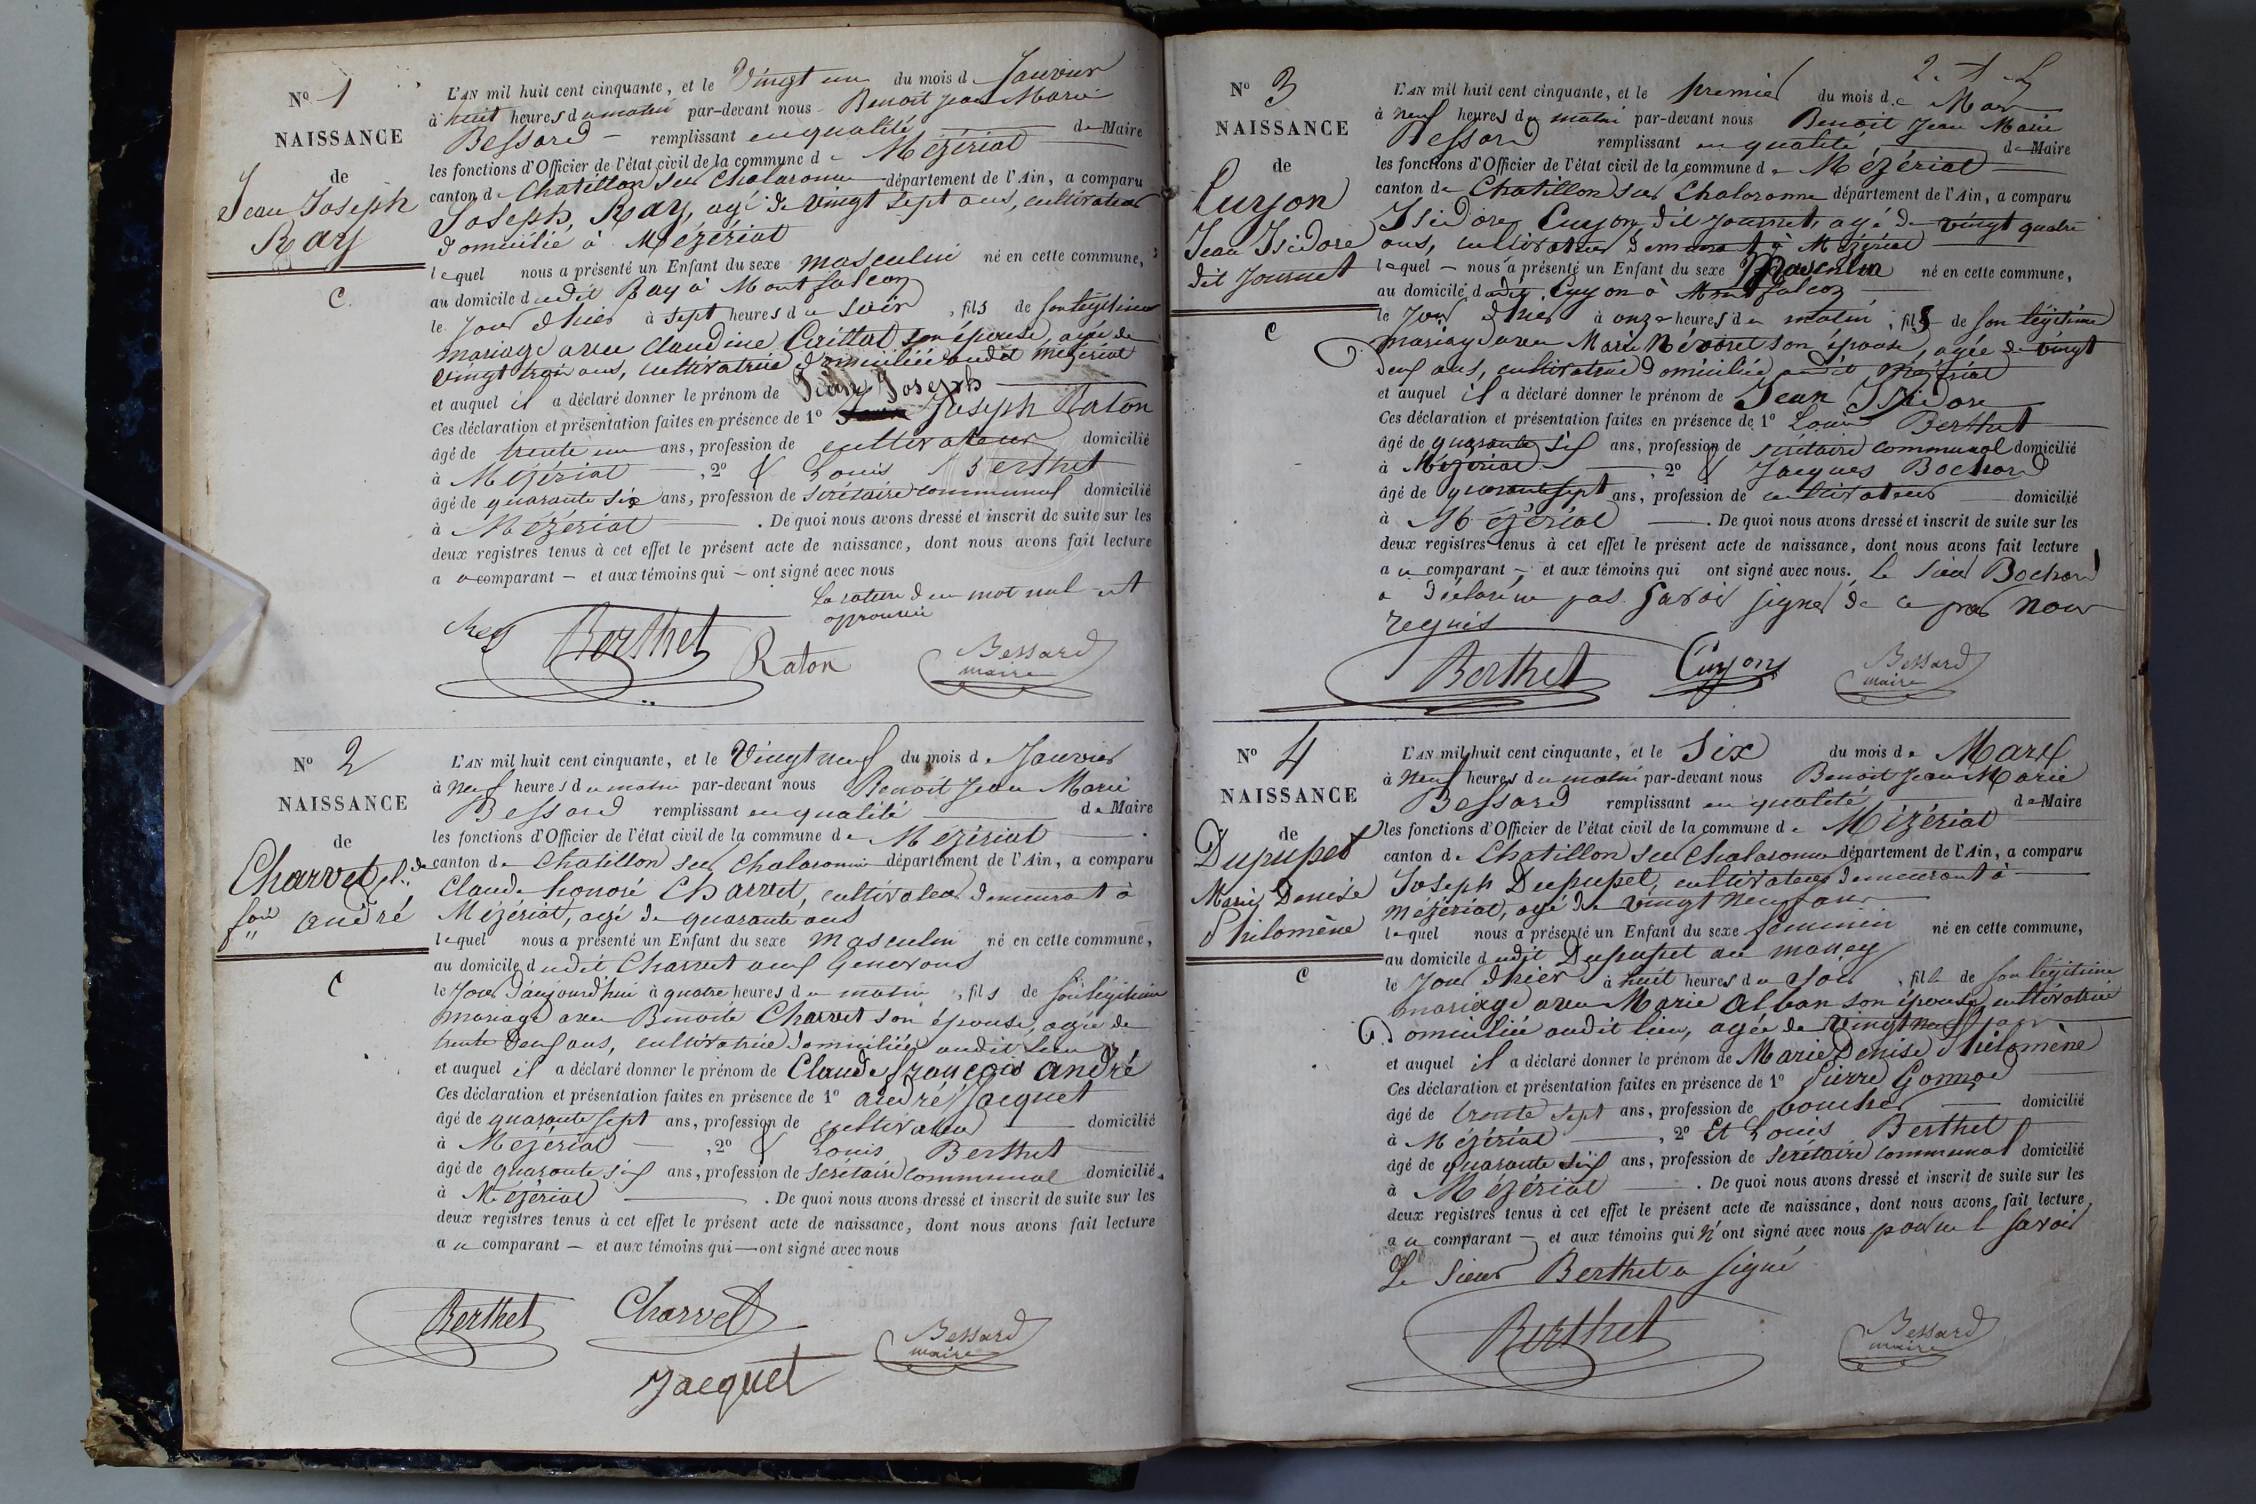 N° 1
NAISSANCE
de
Jean Joseph
Ray
C.
L'AN mil huit cent cinquante, et le Vingt un du mois de Janvier
à huit heures du matin par-devant nous Benoit Jean Marie
Bessard remplissant en qualité de Maire
les fonctions d'Officier de l'état civil de la commune de Mézériat
canton de Chatillon sur Chalaronne département de l'Ain, a comparu
Joseph Ray, agé de vingt sept ans, cultivateur
domicilié à Mézériat
lequel nous a présenté un Enfant du sexe masculin né en cette commune,
au domicile dudit Ray à Montfalcon
le Jour d'hier à sept heures du soir, fils de son légitime
mariage avec Claudine son épouse, agée de
vingt trois ans, cultivatrice domiciliée audit Mézériat
et auquel il a déclaré donner le prénom de Jean Joseph
Ces déclaration et présentation faites en présence de 1° Joseph Raton
âgé de trente un ans, profession de cultivateur domicilié
à Mézériat, 2° & Louis Berthet
âgé de quarante six ans, profession de secrétaire communal domicilié
à Mézériat. De quoi nous avons dressé et inscrit de suite sur les
deux registres tenus à cet effet le présent acte de naissance, dont nous avons fait lecture
a u comparant — et aux témoins qui — ont signé avec nous
la rature d'un mot nul est
approuvée
Berthet Raton Bessard
maire
N° 2
NAISSANCE
de
Charvet cl.de
fois André
C
L'AN mil huit cent cinquante, et le Vingt neuf du mois de Janvier
à neuf heures du matin par-devant nous Benoit Jean Marie
Bessard remplissant en qualité de Maire
les fonctions d'Officier de l'état civil de la commune de Mézériat
canton de Chatillon sur Chalaronne département de l'Ain, a comparu
Claude honoré Charvet, cultivateur demeurant à
Mézériat, agé de quarante ans
lequel nous a présenté un Enfant du sexe masculin né en cette commune,
au domicile dudit Charvet aux Generons
le Jour d'aujourd'hui à quatre heures du matin, fils de son légitime
mariage avec Benoite Charvet son épouse, agée de
trente deux ans, cultivatrice domiciliée audit lieu
et auquel il a déclaré donner le prénom de Claude françois André
Ces déclaration et présentation faites en présence de 1° André Jacquet
âgé de quarante sept ans, profession de cultivateur domicilié
à Mézériat, 2° & Louis Berthet
âgé de quarante six ans, profession de secrétaire communal domicilié
à Mézériat. De quoi nous avons dressé et inscrit de suite sur les
deux registres tenus à cet effet le présent acte de naissance, dont nous avons fait lecture
a u comparant — et aux témoins qui — ont signé avec nous
Berthet Charvet Bessard
maire
Jacquet
N° 3
NAISSANCE
de
Cuzon
Jean Isidore
dit Journet
C
L'AN mil huit cent cinquante, et le premier du mois de Mars
à neuf heures du matin par-devant nous Benoit Jean Marie
Bessard remplissant en qualité de Maire
les fonctions d'Officier de l'état civil de la commune de Mézériat
canton de Chatillon sur Chalaronne département de l'Ain, a comparu
Isidore Cuzon dit Journet, agé de vingt quatre
ans, cultivateur demeurant à Mézériat
lequel — nous a présenté un Enfant du sexe Masculin né en cette commune,
au domicile dudit Cuzon à Montfalcon
le Jour d'hier à onze heures du matin, fils de son légitime
mariage avec Marie son épouse, agée de vingt
deux ans, cultivatrice domiciliée audit Mézériat
et auquel il a déclaré donner le prénom de Jean Isidore
Ces déclaration et présentation faites en présence de 1° Louis Berthet
âgé de quarante six ans, profession de secrétaire communal domicilié
à Mézériat, 2° & Jacques Bochard
âgé de quarante sept ans, profession de cultivateur domicilié
à Mézériat. De quoi nous avons dressé et inscrit de suite sur les
deux registres tenus à cet effet le présent acte de naissance, dont nous avons fait lecture
a u comparant — et aux témoins qui ont signé avec nous. le sieur Bochard
a déclaré ne pas savoir signer de ce par nous
requis
Berthet Cuzon Bessard
maire
N° 4
NAISSANCE
de
Dupupet
Marie Denise
Philomène
C
L'AN mil huit cent cinquante, et le Six du mois de Mars
à neuf heures du matin par-devant nous Benoit Jean Marie
Bessard remplissant en qualité de Maire
les fonctions d'Officier de l'état civil de la commune de Mézériat
canton de Chatillon sur Chalaronne département de l'Ain, a comparu
Joseph Dupupet, cultivateur demeurant à
Mézériat, agé de vingt neuf ans
lequel nous a présenté un Enfant du sexe féminin né en cette commune,
au domicile dudit Dupupet au
le Jour d'hier à huit heures du soir, fille de son légitime
mariage avec Marie Alban son épouse, cultivatrice
domiciliée audit lieu, agée de vingt neuf ans
et auquel il a déclaré donner le prénom de Marie Denise Philomène
Ces déclaration et présentation faites en présence de 1° Pierre Gonnod
âgé de trente sept ans, profession de boucher domicilié
à Mézériat, 2° Et Louis Berthet
âgé de quarante six ans, profession de secrétaire communal domicilié
à Mézériat. De quoi nous avons dressé et inscrit de suite sur les
deux registres tenus à cet effet le présent acte de naissance, dont nous avons fait lecture
a u comparant — et aux témoins qui n'ont signé avec nous pour ne l savoir
Le Sieur Berthet a signé
Berthet Bessard
maire